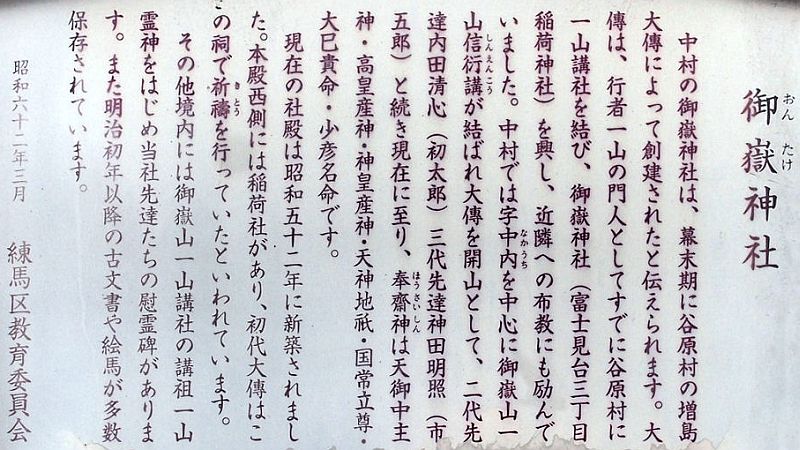 御嶽神社
おんたけ
中村の御嶽神社は、幕末期に谷原村の増島
大傳によって創建されたと伝えられます。大
傳は、行者一山の門人としてすでに谷原村に
一山講社を結び、御嶽神社（富士見台三丁目
稲荷神社）を興し、近隣への布教にも励んで
いました。中村では字中内を中心に御嶽山一
なかうち
山信衍講が結ばれ大傳を開山として、二代先
しんえんこう
達内田清心（初太郎）三代先達神田明照（市
五郎）と続き現在に至り、奉齋神は天御中主
ほうさいしん
神・高皇産神・神皇産神・天神地祇・国常立尊・
大巳貴命・少彦名命です。
現在の社殿は昭和五十二年に新築されまし
た。本殿西側には稲荷社があり、初代大傳はこ
の祠で祈禱を行っていたといわれています。
きとう
その他境内には御嶽山一山講社の講祖一山
霊神をはじめ当社先達たちの慰霊碑がありま
す。また明治初年以降の古文書や絵馬が多数
保存されています。
昭和六十二年三月
練馬区教育委員会